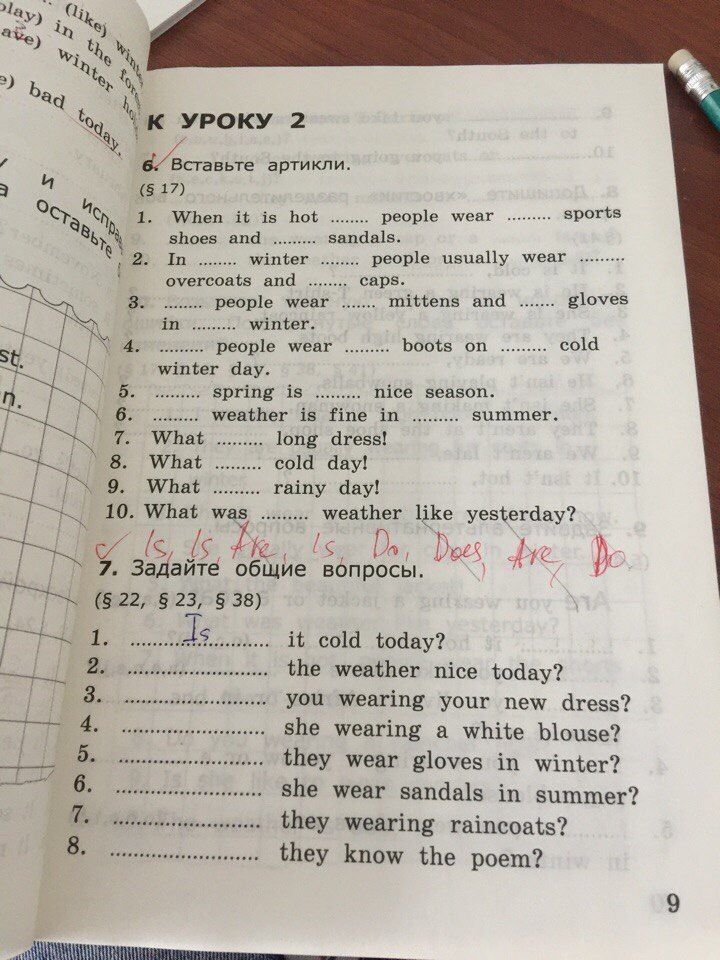 (like) winte
play) in the fore
ave) winter ho
e) bad today.
К УРОКУ 2
6. Вставьте артикли.
(§ 17)
1. When it is hot ........ people wear ......... sports
shoes and ......... sandals.
2. In ........ winter ........ people usually wear .........
overcoats and ........ caps.
3. ........ people wear ........ mittens and ....... gloves
in ......... winter.
4. ......... people wear ......... boots on ......... cold
winter day.
5. ......... spring is ......... nice season.
6. ......... weather is fine in ......... summer.
7. What ......... long dress!
8. What ......... cold day!
9. What ......... rainy day!
10. What was ......... weather like yesterday?
Is, Is Are, Is, Do, Does, Are, Do.
7. Задайте общие вопросы.
(§ 22, § 23, § 38)
1. ..........Is.......... it cold today?
2. ........................ the weather nice today?
3. ........................ you wearing your new dress?
4. ........................ she wearing a white blouse?
5. ........................ they wear gloves in winter?
6. ........................ she wear sandals in summer?
7. ........................ they wearing raincoats?
8. ........................ they know the poem?
9
и испра
оставьте
st.
n.